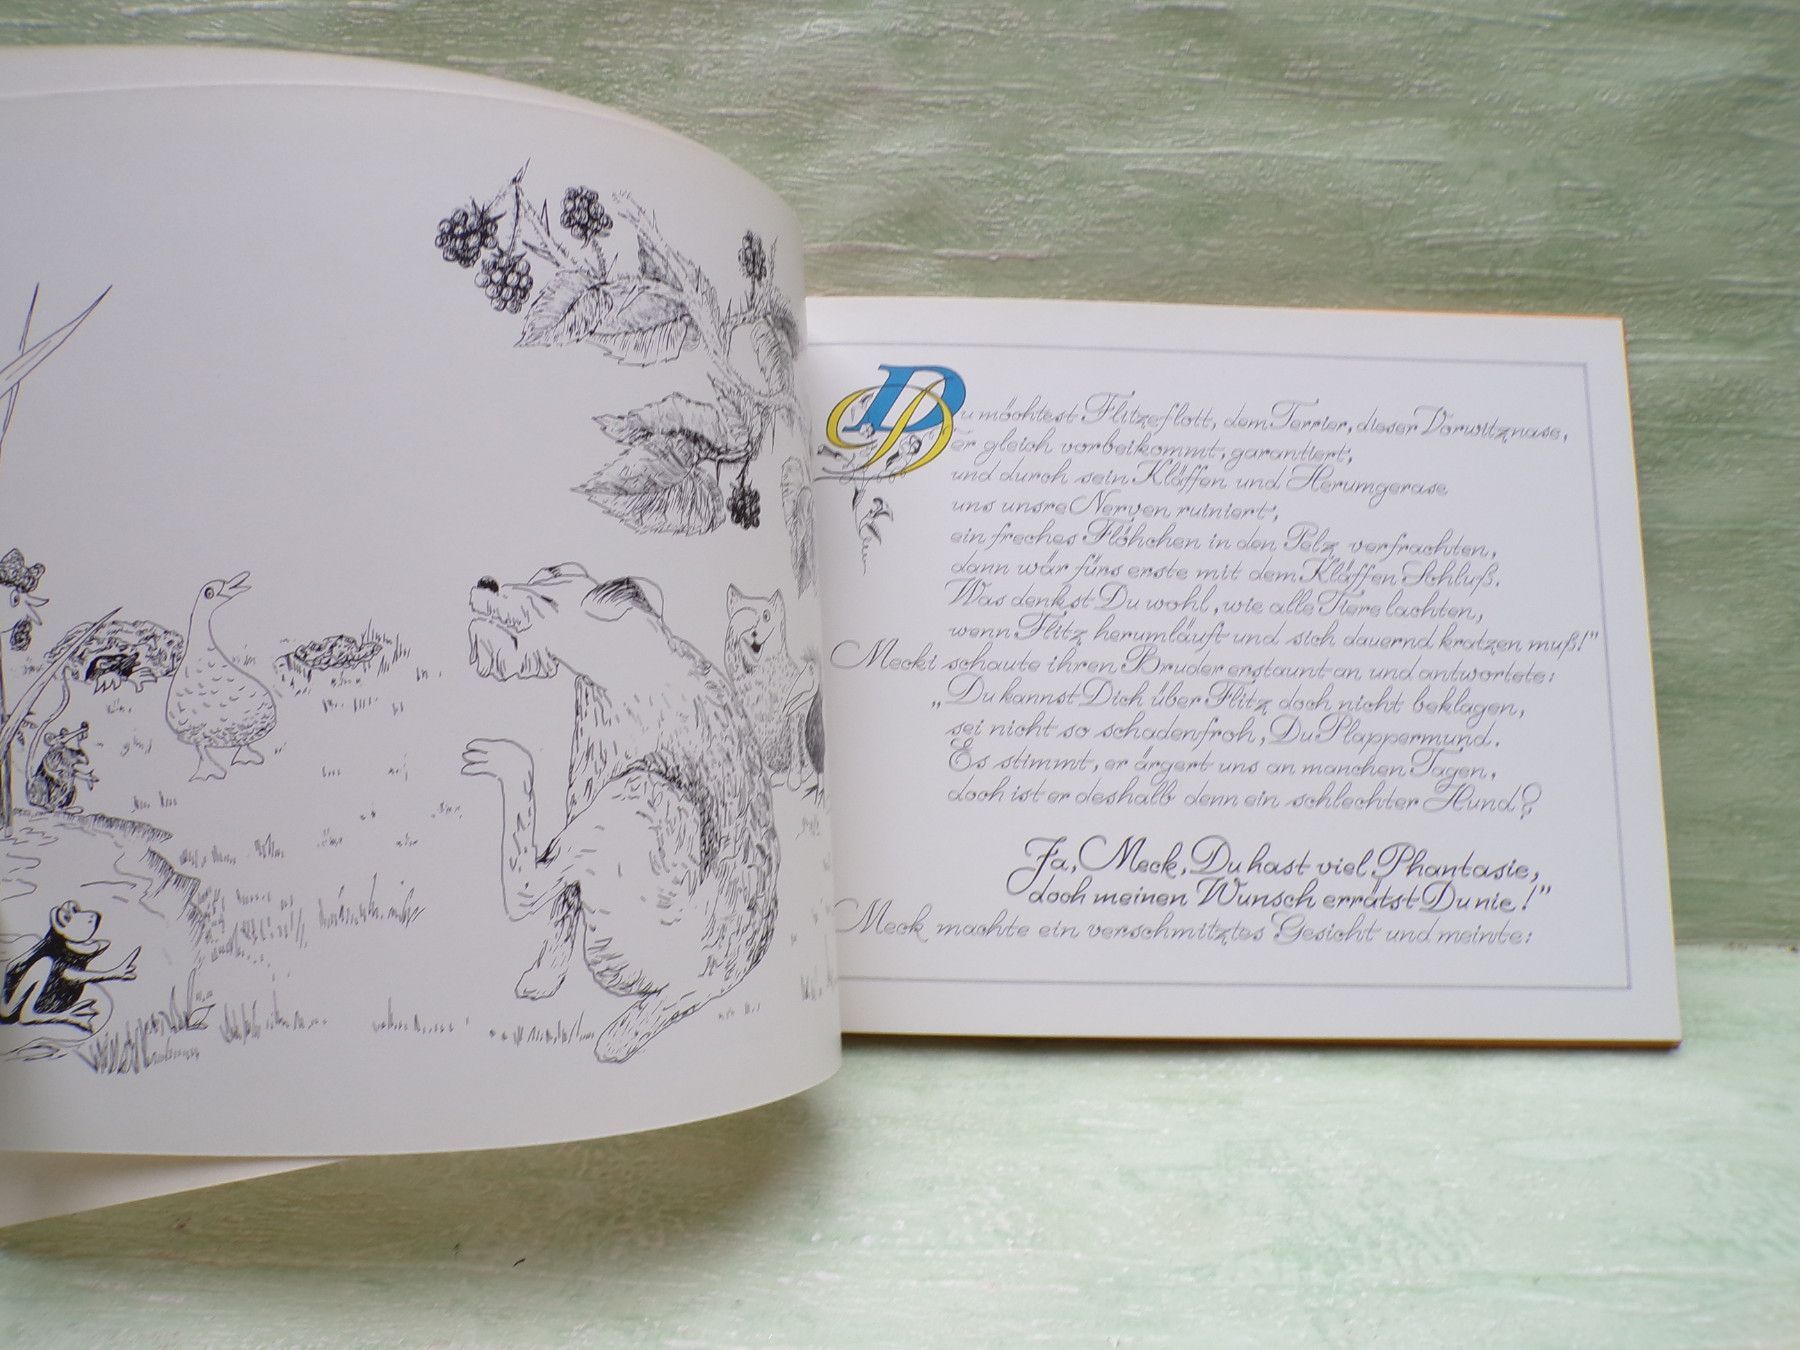 Du möchtest Flitzeflott, dem Terrier, dieser Vorwitznase,
er gleich vorbeikommt, garantiert,
und durch sein Kläffen und Herumgerase
uns unsre Nerven ruiniert,
ein freches Flöhchen in den Pelz verfrachten,
dann wär fürs erste mit dem Kläffen Schluß.
Was denkst Du wohl, wie alle Tiere lachten,
wenn Flitz herumläuft und sich dauernd kratzen muß!"
Mecki schaute ihren Bruder erstaunt an und antwortete:
„Du kannst Dich über Flitz doch nicht beklagen,
sei nicht so schadenfroh, Du Plappermund.
Es stimmt, er ärgert uns an manchen Tagen,
doch ist er deshalb denn ein schlechter Hund?
Ja, Meck, Du hast viel Phantasie,
doch meinen Wunsch errätst Du nie!"
Meck machte ein verschmitztes Gesicht und meinte: